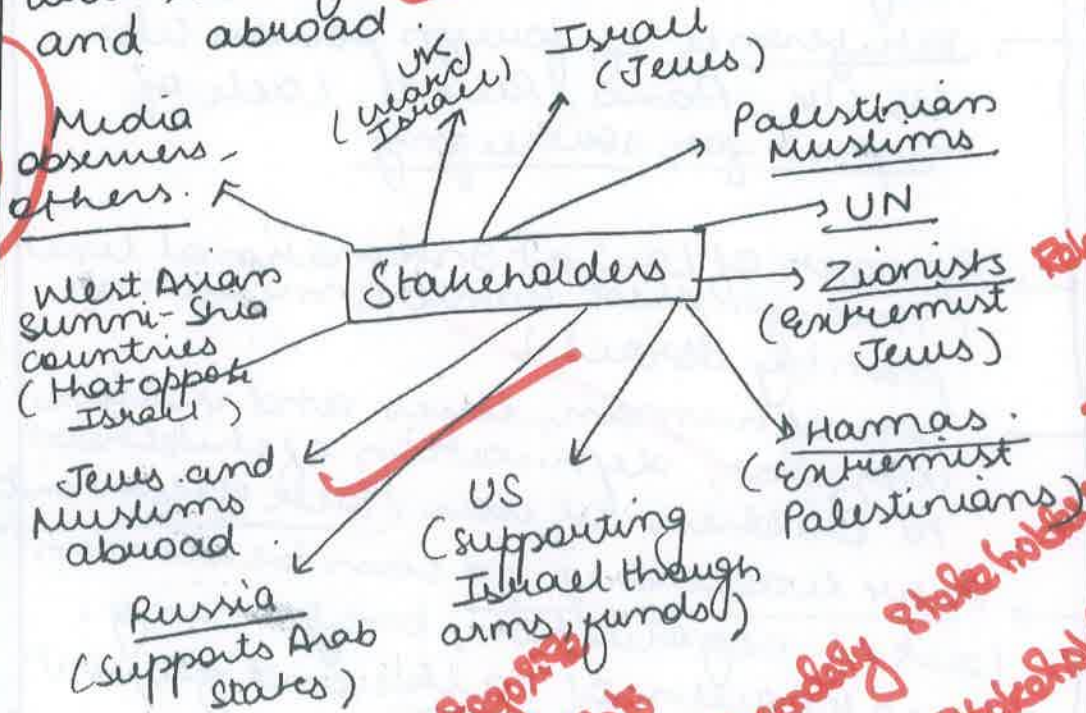 and abroad.
UK
(
Israel)
Israel
(Jews)
Media
observers,
others.
Palestinian
Muslims
UN
Stakeholders
Zionists
(Extremist
Jews)
West Asian
Sunni-Shia
countries
(that oppose
Israel)
Hamas.
(Extremist
Palestinians)
Jews and
Muslims
abroad.
US
(supporting
Israel though
arms, funds)
Russia
(supports Arab
states)
stakeholde